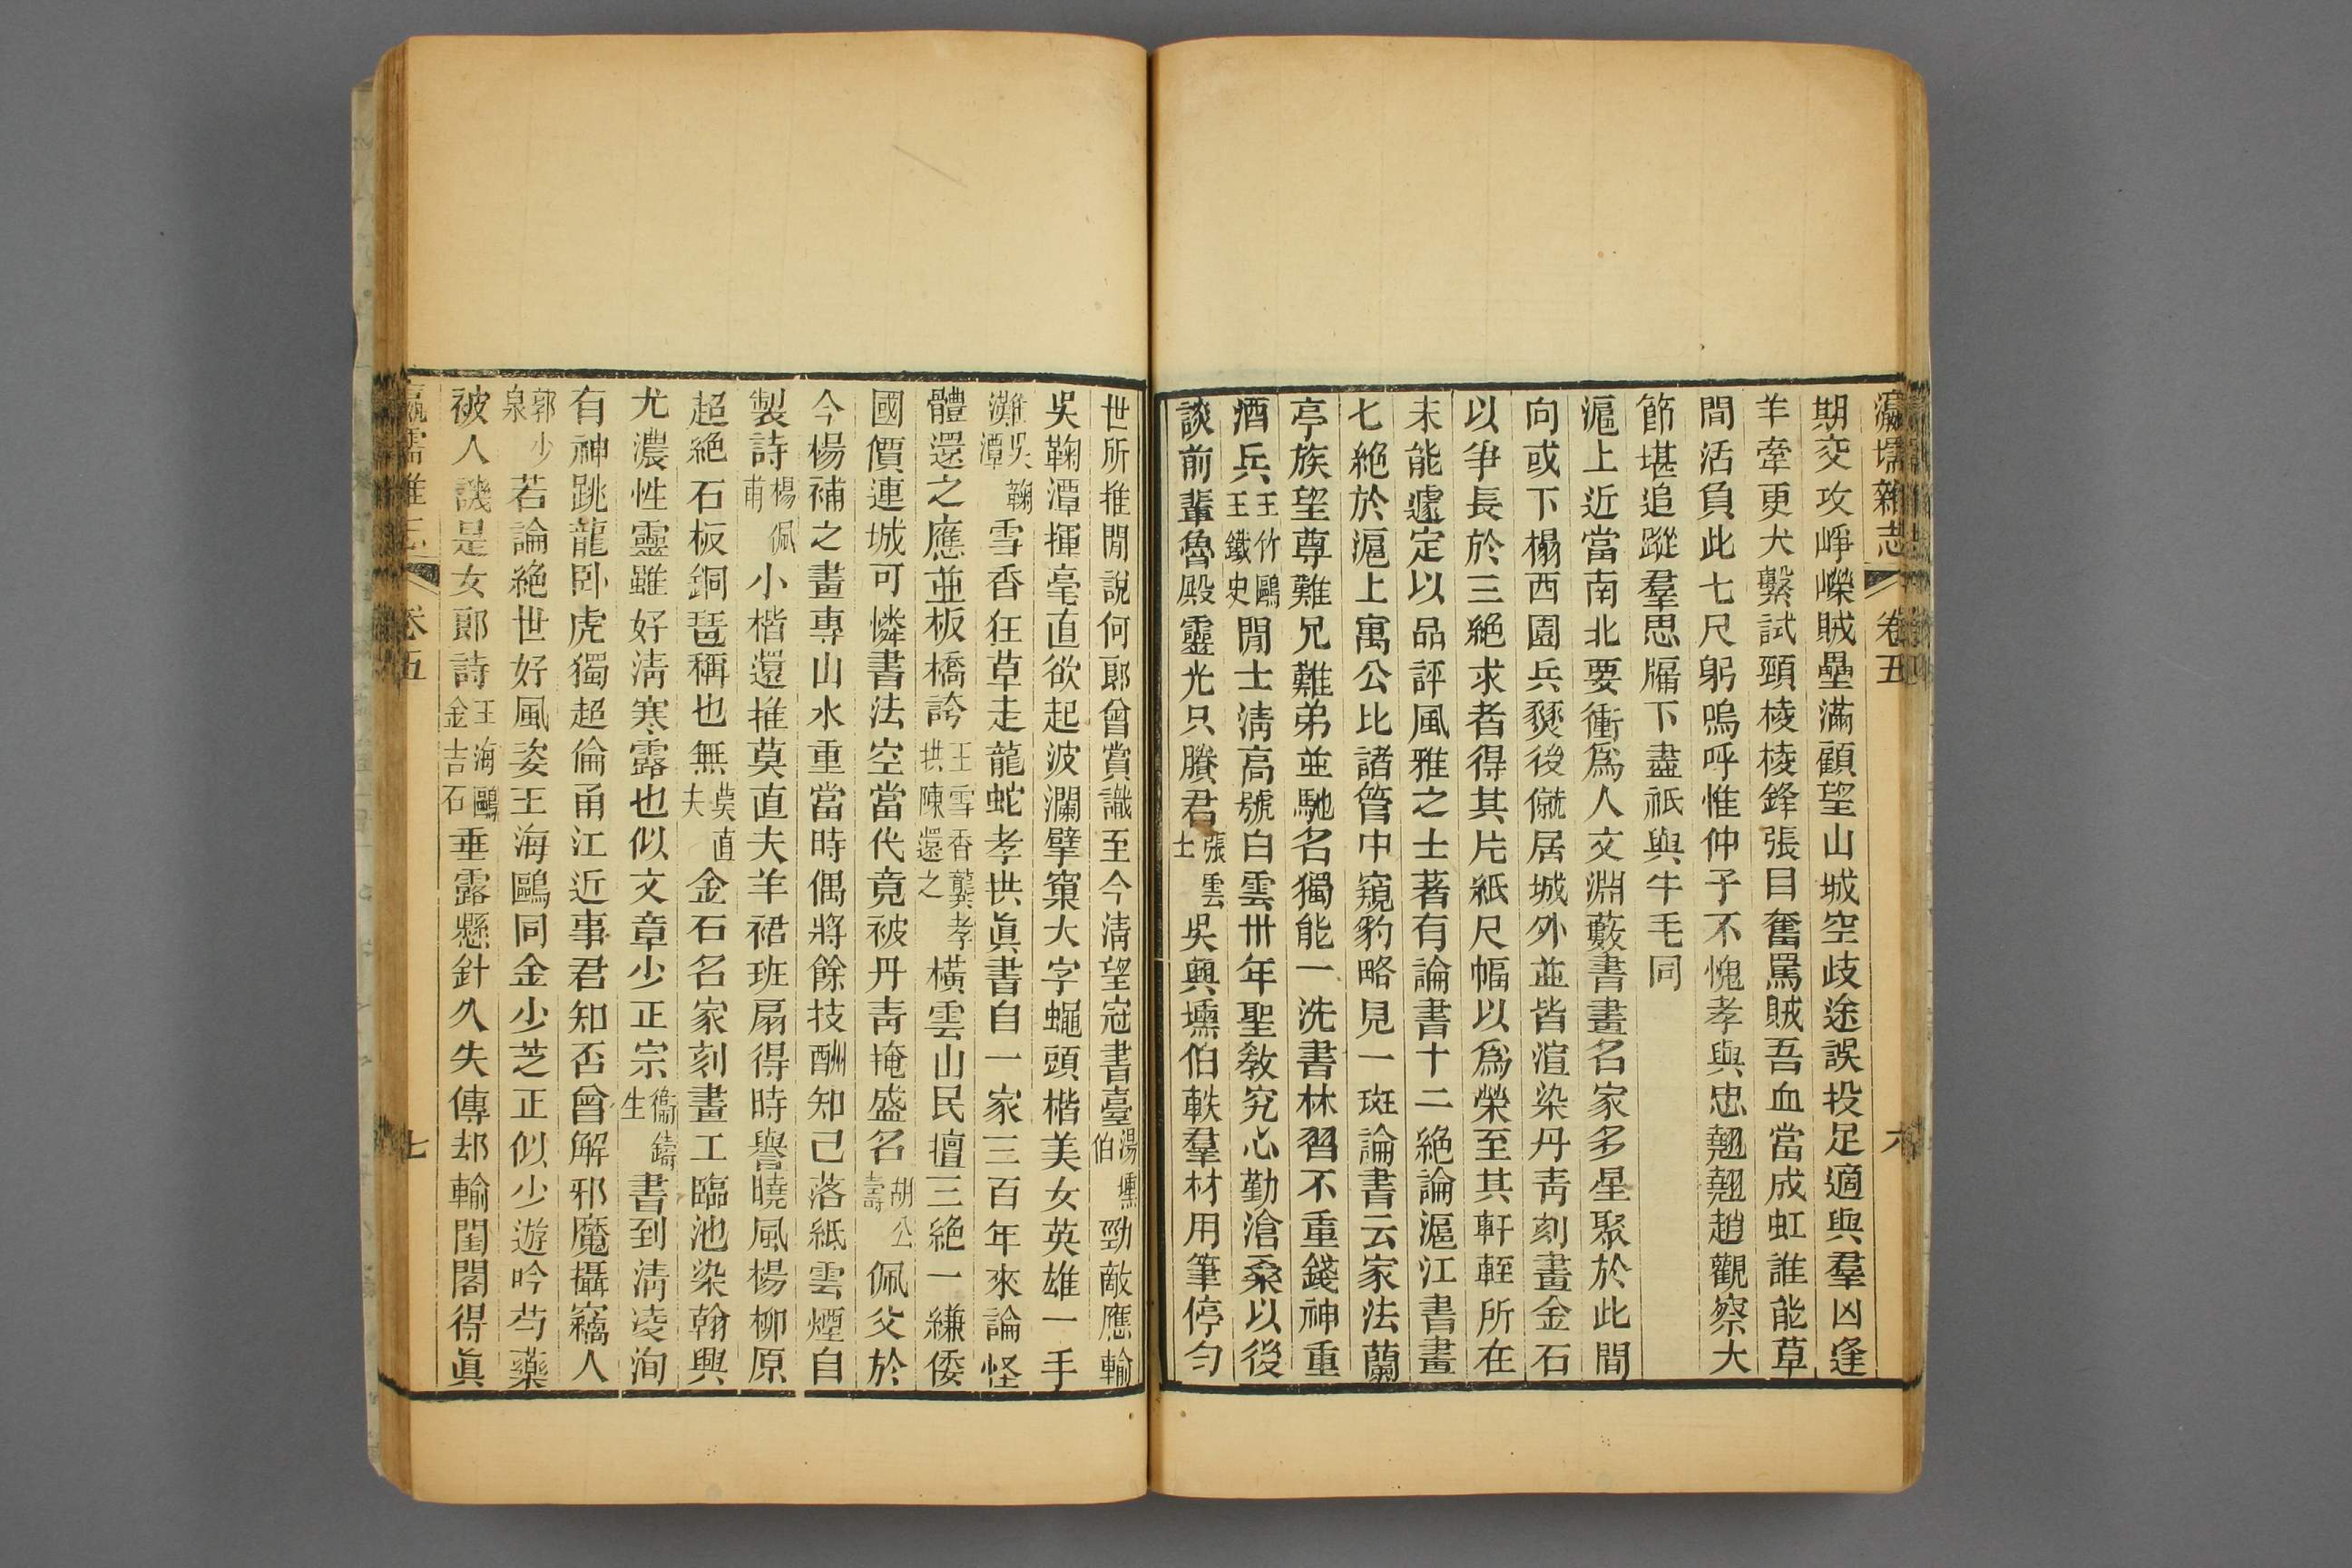 瀛壖雜志 卷五 六
期交攻崢嶸賊壘滿顧望山城空歧途誤投足適與羣凶逢
羊牽更犬繫試頸棱棱鋒張目奮罵賊吾血當成虹誰能草
間活負此七尺躬嗚呼惟仲子不愧孝與忠翹翹趙觀察大
節堪追蹤羣思牖下盡祇與牛毛同
滬上近當南北要衝爲人文淵藪書畫名家多星聚於此間
向或下榻西園兵燹後僦居城外並皆渲染丹青刻畫金石
以爭長於三絕求者得其片紙尺幅以爲榮至其軒輊所在
未能遽定以品評風雅之士著有論書十二絕論滬江書畫
七絕於滬上寓公比諸管中窺豹略見一斑論書云家法蘭
亭族望尊難兄難弟並馳名獨能一洗書林習不重錢神重
酒兵王竹鷗王鐵史閒士淸高號白雲卅年聖教究心勤滄桑以後
談前輩魯殿靈光只賸君張雲士吳興壎伯軼羣材用筆停勻
世所推閒說何郎曾賞識至今淸望冠書臺湯壎伯勁敵應輸
吳鞠潭揮毫直欲起波瀾擘窠大字蠅頭楷美女英雄一手
難吳鞠潭雪香狂草走龍蛇孝拱眞書自一家三百年來論怪
體還之應並板橋誇王雪香龔孝拱陳還之橫雲山民擅三絕一縑倭
國價連城可憐書法空當代竟被丹青掩盛名胡公壽佩父於
今楊補之畫專山水重當時偶將餘技酬知己落紙雲煙自
製詩楊佩甫小楷還推莫直夫羊裙班扇得時譽曉風楊柳原
超絕石板銅琶稱也無莫直夫金石名家刻畫工臨池染翰興
尤濃性靈雖好淸寒露也似文章少正宗衞鑄生書到淸凌洵
有神跳龍卧虎獨超倫甬江近事君知否曾解邪魔攝竊人
郭少泉若論絕世好風姿王海鷗同金少芝正似少遊吟芍藥
被人譏是女郎詩王海鷗金吉石垂露懸針久失傳却輸閨閣得眞
卷五 七